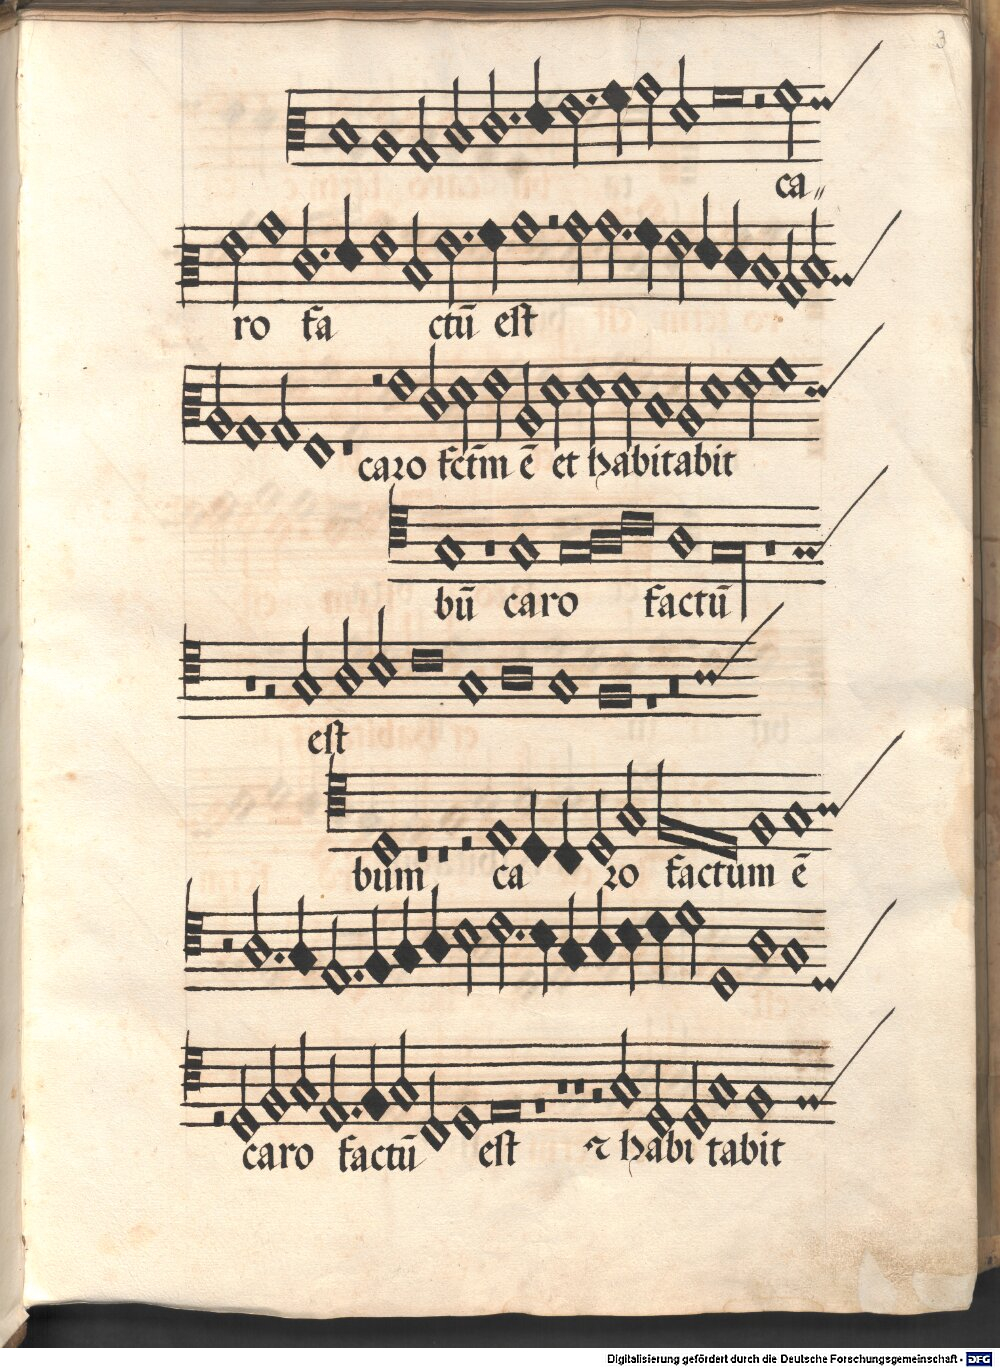 3
ca〃
ro fa ctū est
caro fctm̄ ē et habitabit
bū caro factū
est
bum ca ro factum ē
caro factū est ⁊ habi tabit
Digitalisierung gefördert durch die Deutsche Forschungsgemeinschaft - DFG